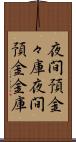 夜間預金
々庫夜間
預金金庫